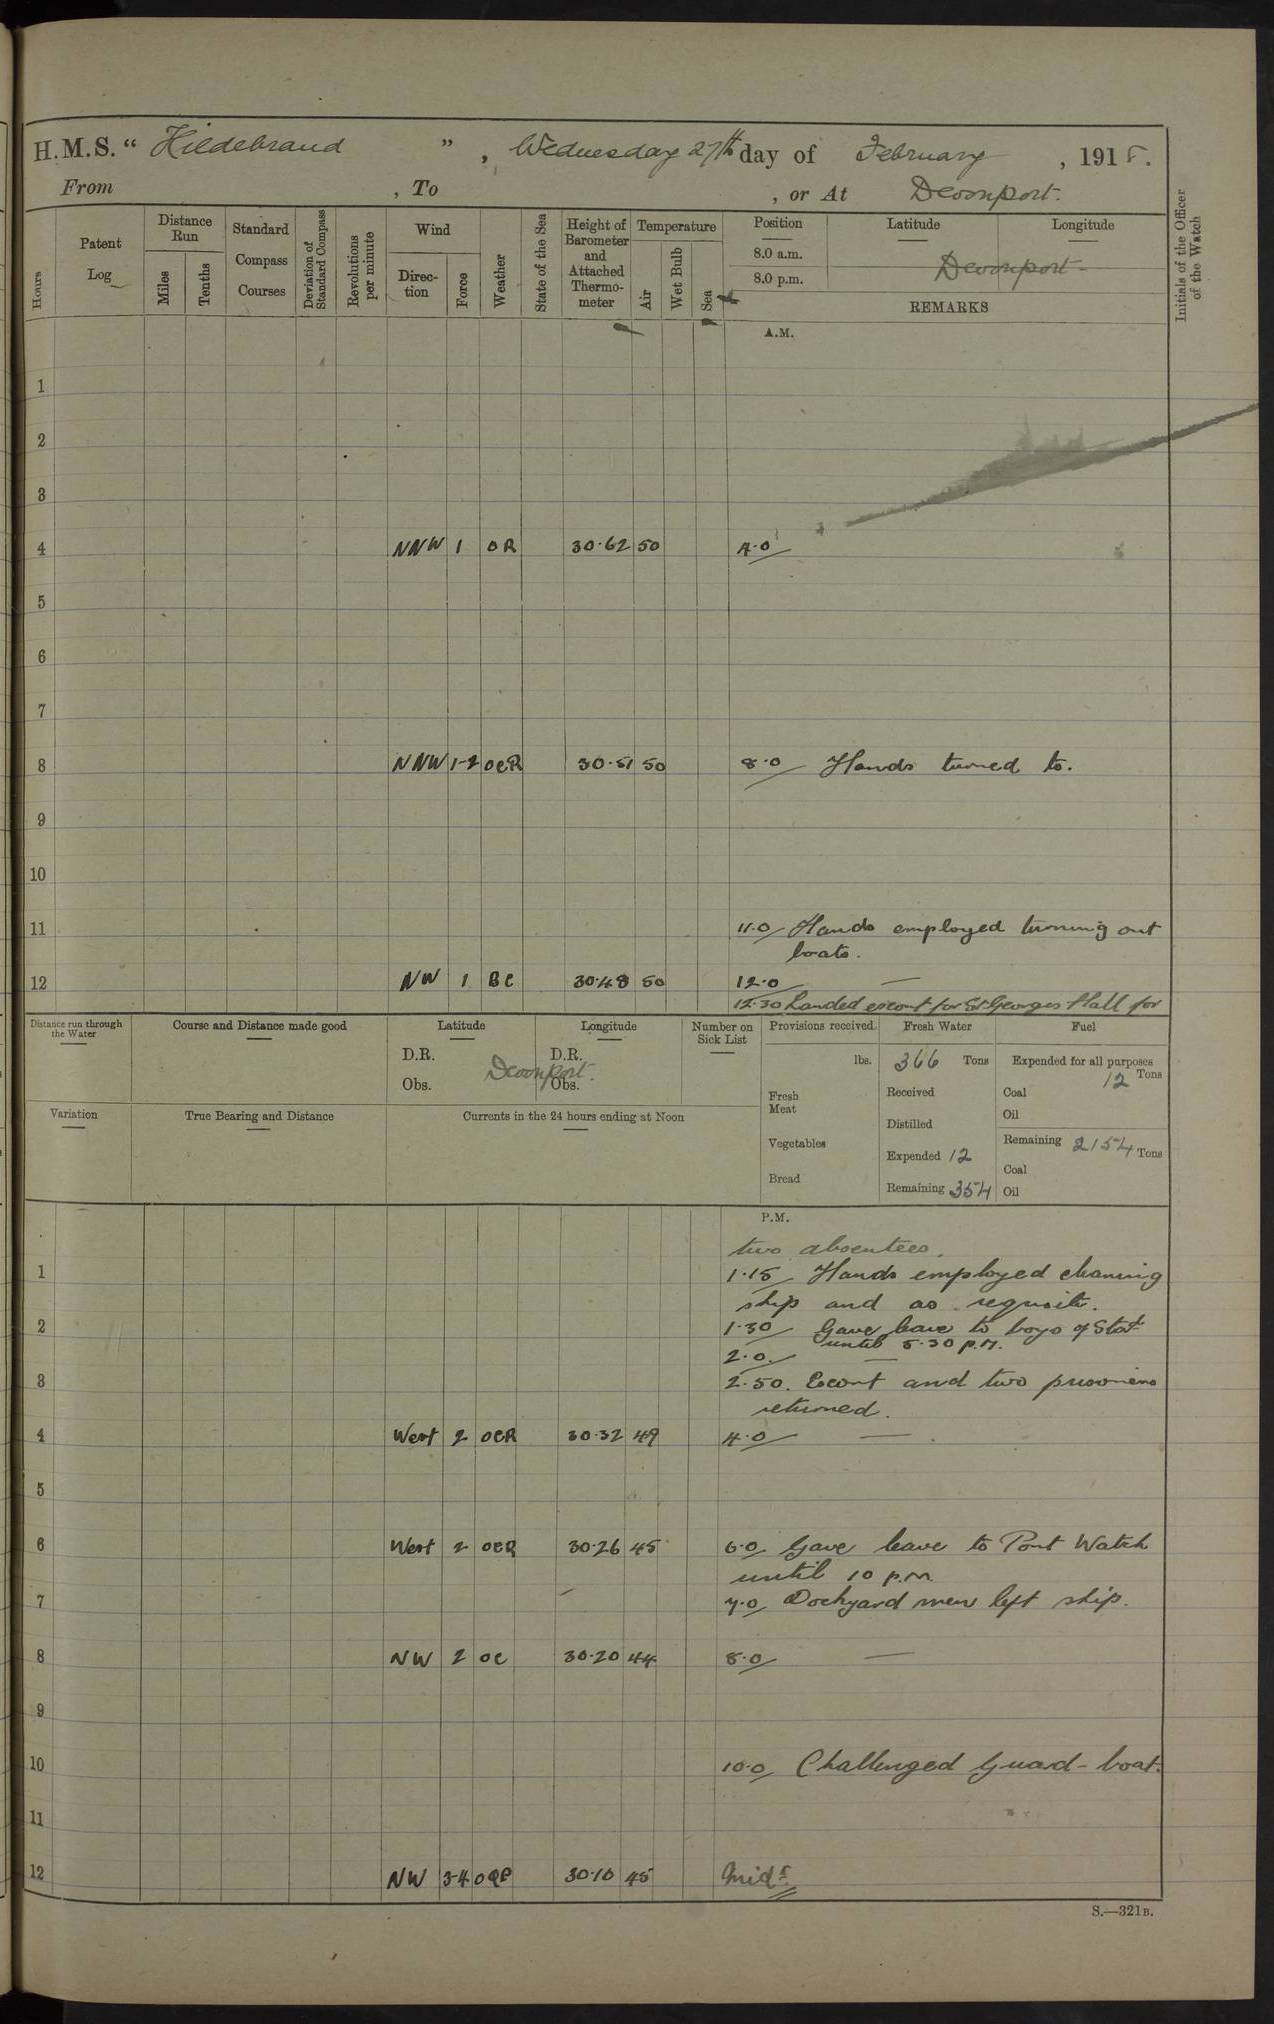 H.M.S. “ Hildebrand ” , Wednesday 27th day of February , 1918.
From , To , or At Devonport.
Hours
Patent Log
Distance Run
Miles
Tenths
Standard Compass Courses
Deviation of Standard Compass
Revolutions per minute
Wind
Direction
Force
Weather
State of the Sea
Height of Barometer and Attached Thermometer
Temperature
Air
Wet Bulb
Sea
Position Latitude Longitude
8.0 a.m.
8.0 p.m.
Devonport
REMARKS
Initials of the Officer of the Watch
A.M.
1
2
3
4 NNW 1 OR 30.62 50 4.0
5
6
7
8 NNW 1-2 OCR 30.51 50 8.0 Hands turned to.
9
10
11 11.0 Hands employed turning out
boats.
12 NW 1 BC 30.48 50 12.0 —
12.30 Landed escort for St Georges Hall for
Distance run through the Water
Course and Distance made good
Latitude
D.R.
Obs.
Longitude
D.R.
Obs.
Devonport.
Number on Sick List
Provisions received.
lbs.
Fresh Meat
Vegetables
Bread
Fresh Water
366 Tons
Received
Distilled
Expended 12
Remaining 354
Fuel
Expended for all purposes
12 Tons
Coal
Oil
Remaining 2154 Tons
Coal
Oil
Variation
True Bearing and Distance
Currents in the 24 hours ending at Noon
P.M.
two absentees.
1 1.15 Hands employed cleaning
ship and as requisite.
2 1.30 Gave leave to boys of Stbd
until 5.30 p.m.
2.0. —
3 2.50. Escort and two prisoners
returned.
4 West 2 OCR 30.32 49 4.0 —
5
6 West 2 OCR 30.26 45 6.0 Gave leave to Port Watch
until 10 p.m.
7 7.0 Dockyard men left ship.
8 NW 2 OC 30.20 44 8.0 —
9
10 10.0 Challenged Guard-boat.
11
12 NW 3-4 OQP 30.10 45 Midt
S.—321B.